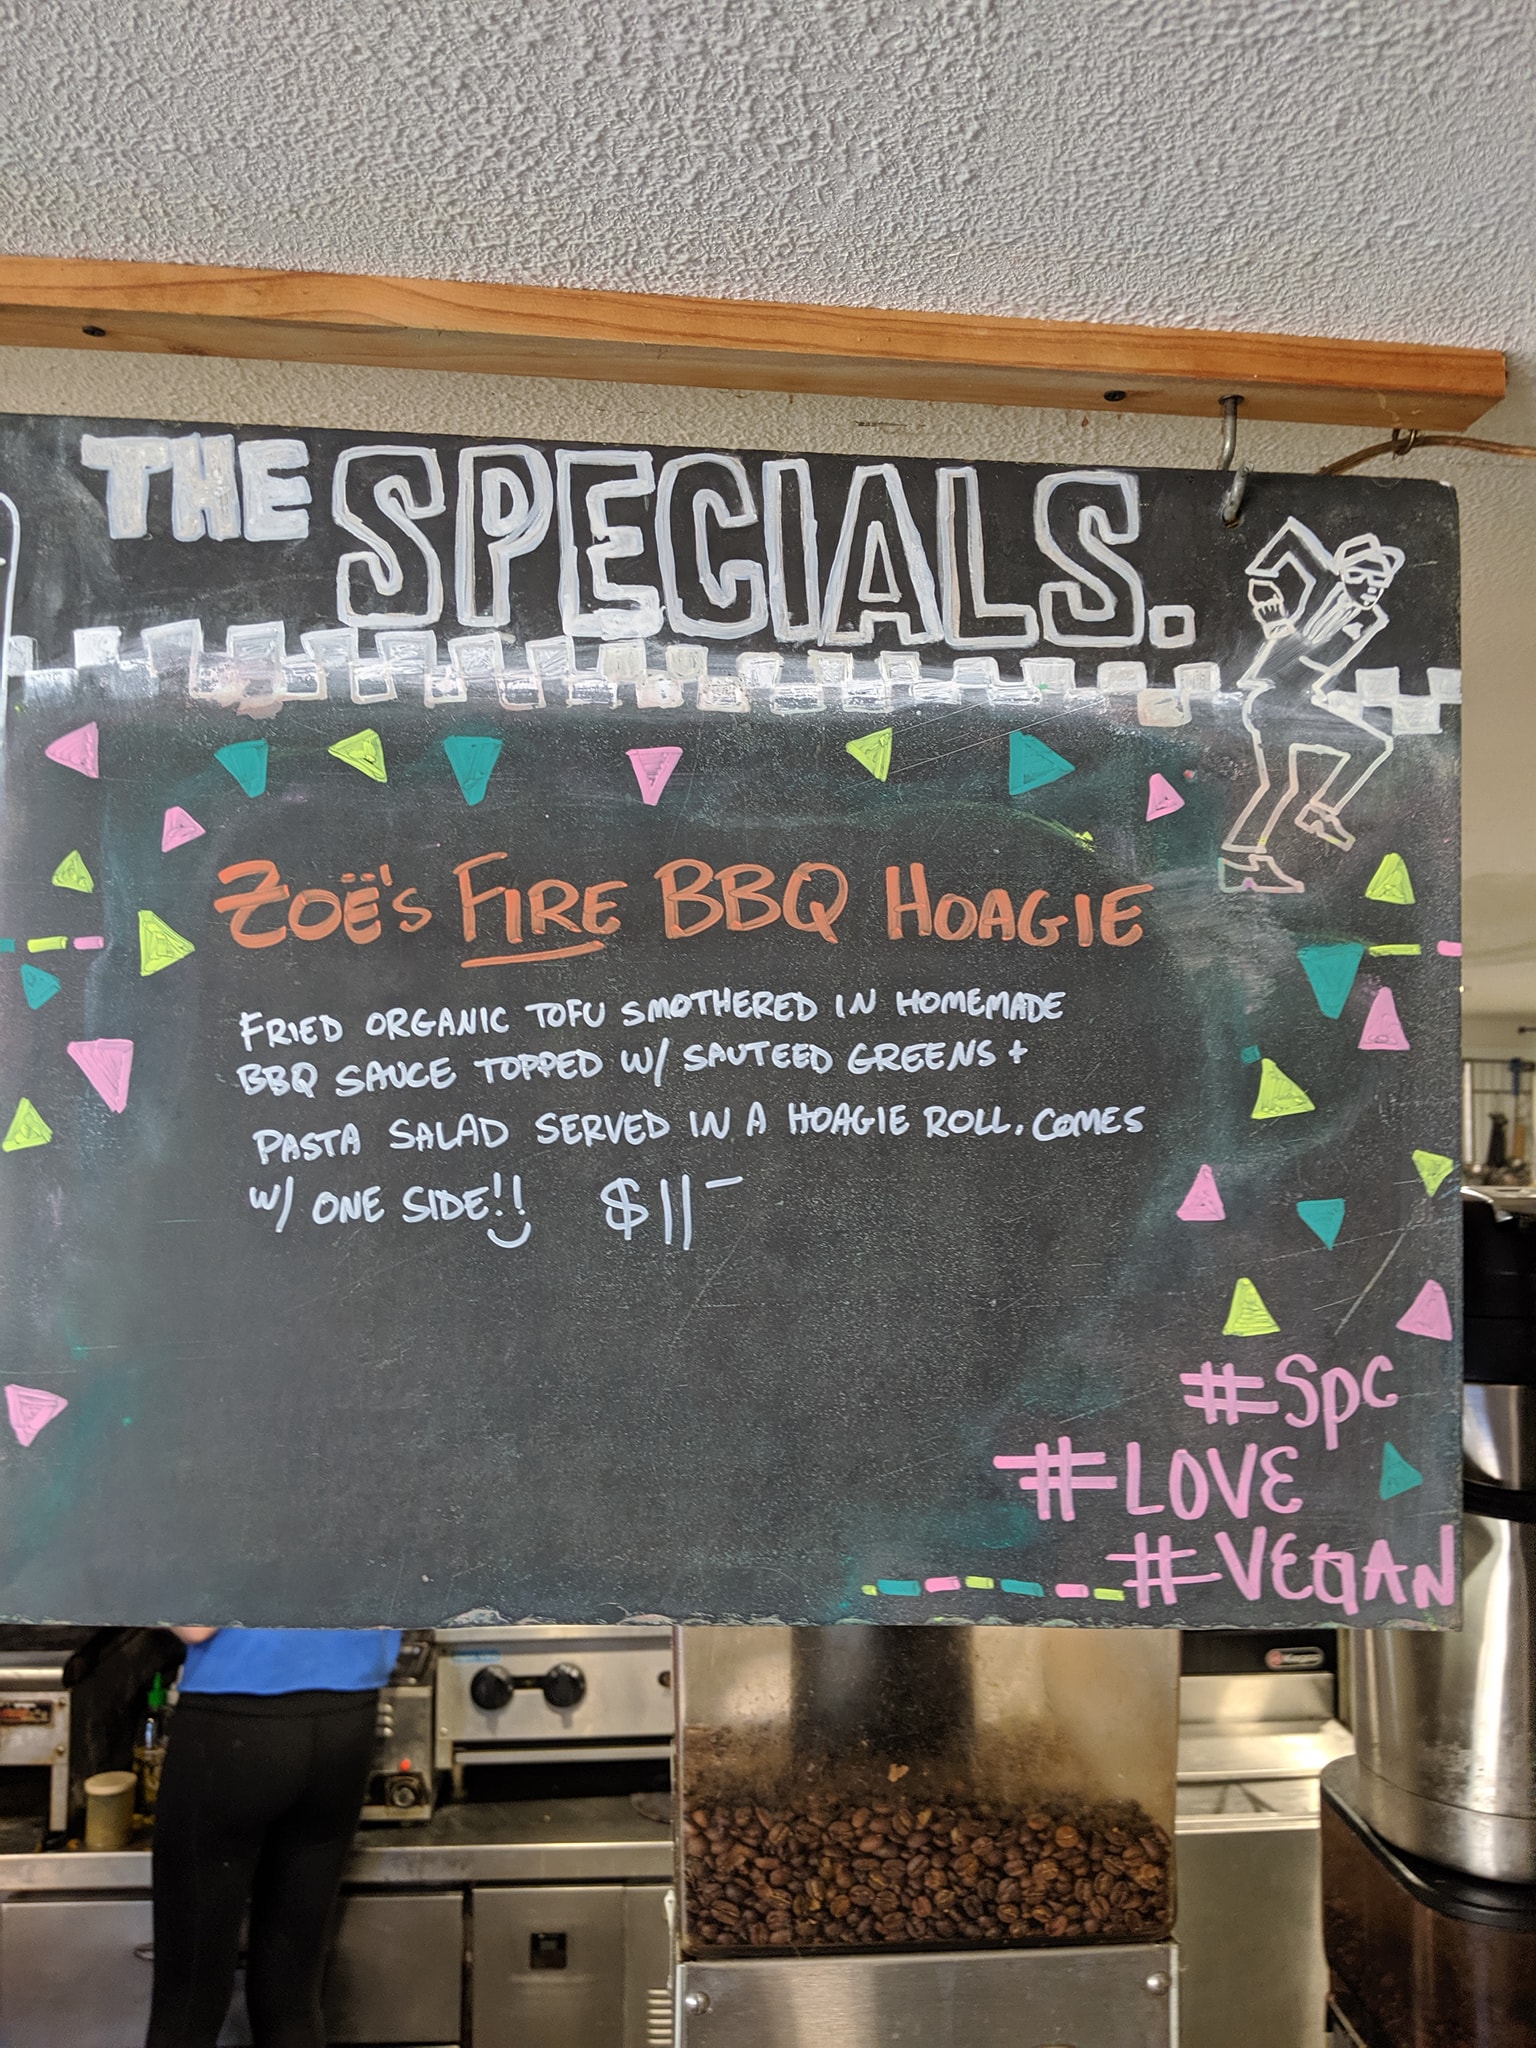 THE SPECIALS.
ZOË'S FIRE BBQ HOAGIE
FRIED ORGANIC TOFU SMOTHERED IN HOMEMADE
BBQ SAUCE TOPPED W/ SAUTEED GREENS +
PASTA SALAD SERVED IN A HOAGIE ROLL. COMES
W/ ONE SIDE!! $11-
#Spc
#LOVE
#VEGAN